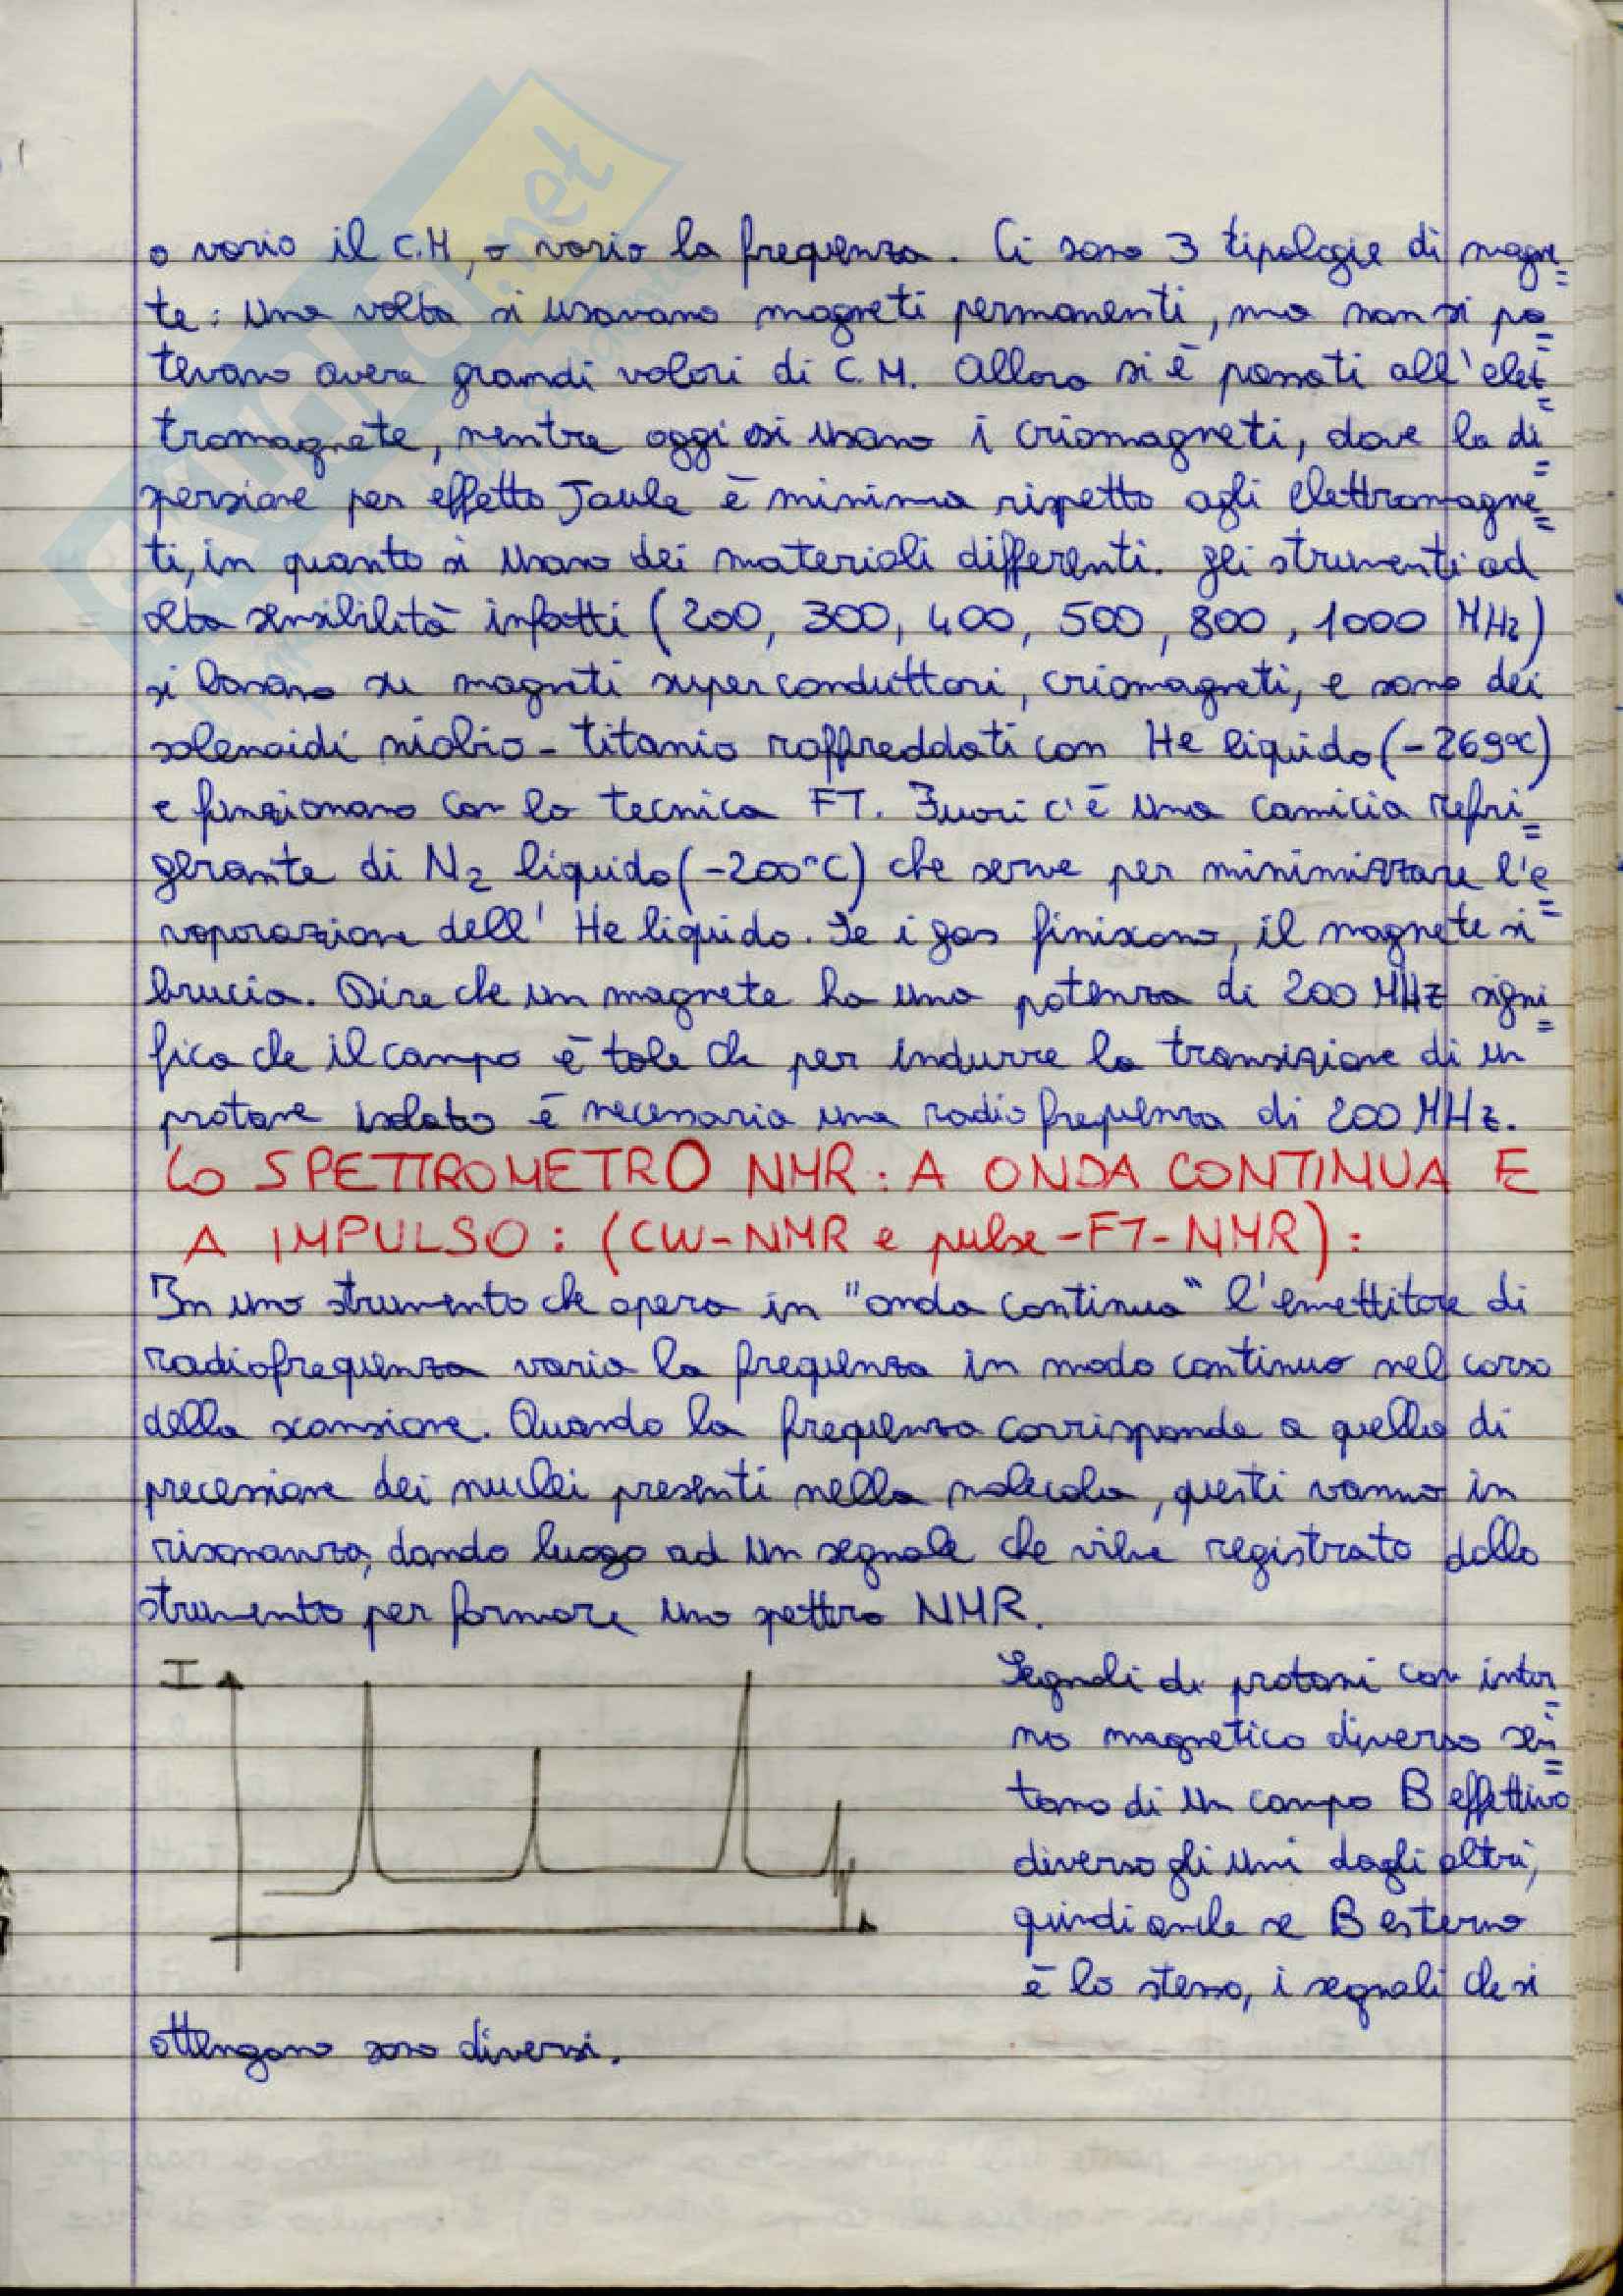 o vario il C.M, o vario la frequenza. Ci sono 3 tipologie di magne=
te: una volta si usavano magneti permanenti, ma non si po=
tevano avere grandi valori di C.M. Allora si è passati all'elet=
tromagnete, mentre oggi si usano i criomagneti, dove la di=
spersione per effetto Joule è minima rispetto agli elettromagne=
ti, in quanto si usano dei materiali differenti. Gli strumenti ad
alta sensibilità infatti (200, 300, 400, 500, 800, 1000 MHz)
si basano su magneti superconduttori, criomagneti, e sono dei
solenoidi niobio-titanio raffreddati con He liquido (-269°C)
e funzionano con la tecnica FT. Fuori c'è una camicia refri=
gerante di N2 liquido (-200°C) che serve per minimizzare l'e=
vaporazione dell' He liquido. Se i gas finiscono, il magnete si
brucia. Dire che un magnete ha una potenza di 200 MHz signi=
fica che il campo è tale che per indurre la transizione di un
protone isolato è necessaria una radiofrequenza di 200 MHz.
Lo SPETTROMETRO NMR: A ONDA CONTINUA E
A IMPULSO: (CW-NMR e pulse-FT-NMR):
In uno strumento che opera in "onda continua" l'emettitore di
radiofrequenza varia la frequenza in modo continuo nel corso
della scansione. Quando la frequenza corrisponde a quella di
precessione dei nuclei presenti nella molecola, questi vanno in
risonanza, dando luogo ad un segnale che viene registrato dallo
strumento per formare uno spettro NMR.
I
Segnali di protoni con intor=
no magnetico diverso sen=
tono di un campo B effettivo
diverso gli uni dagli altri,
quindi anche se B esterno
è lo stesso, i segnali che si
ottengono sono diversi.
.net